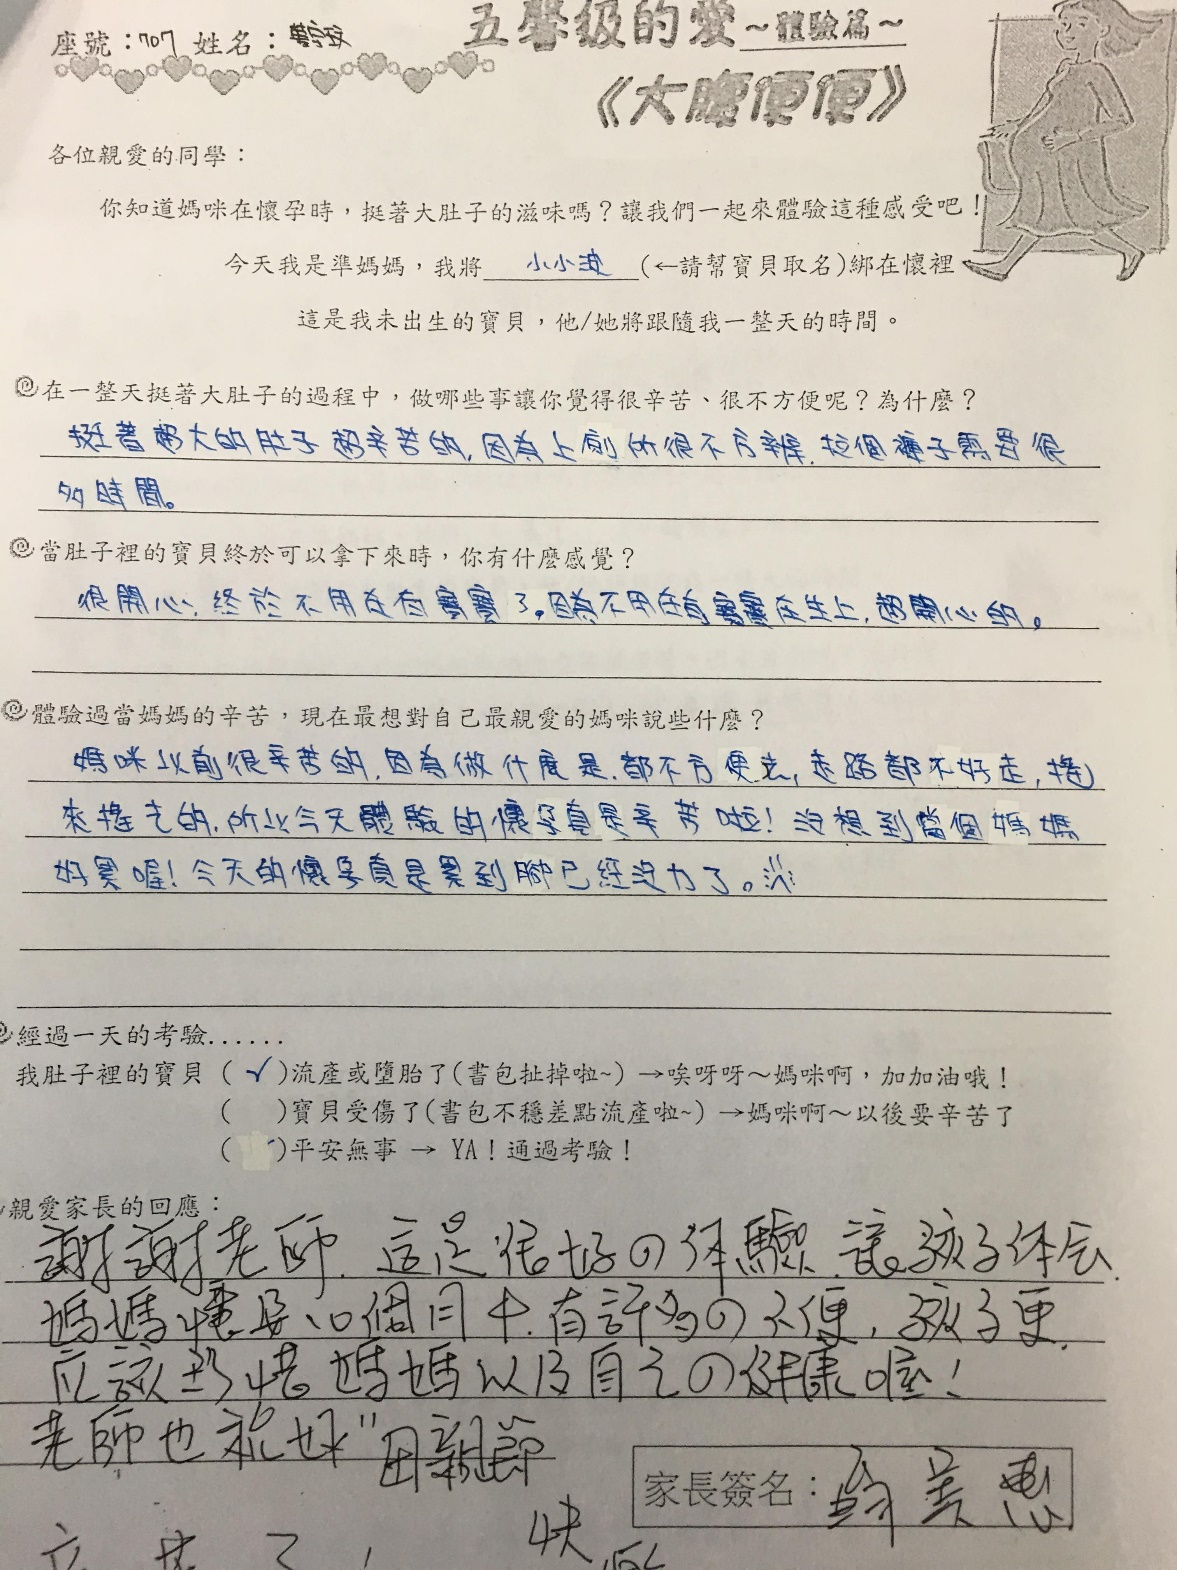 座號：707 姓名：
五馨級的愛～體驗篇～
《大腹便便》
各位親愛的同學：
你知道媽咪在懷孕時，挺著大肚子的滋味嗎？讓我們一起來體驗這種感受吧！
今天我是準媽媽，我將小小波(←請幫寶貝取名)綁在懷裡
這是我未出生的寶貝，他/她將跟隨我一整天的時間。
在一整天挺著大肚子的過程中，做哪些事讓你覺得很辛苦、很不方便呢？為什麼？
挺著超大的肚子超辛苦的，因為上廁所很不方辨，拉個褲子需要很
多時間。
當肚子裡的寶貝終於可以拿下來時，你有什麼感覺？
很開心，終於不用在有寶寶了。因為不用在有寶寶在生上，超開心的。
體驗過當媽媽的辛苦，現在最想對自己最親愛的媽咪說些什麼？
媽咪以前很辛苦的，因為做什麼是，都不方便去，走路都不好走，搖
來搖去的，所以今天體驗的懷孕真是辛苦啦！沒想到當個媽媽
好累喔！今天的懷孕真是累到腳已經沒力了。
經過一天的考驗......
我肚子裡的寶貝 (✓)流產或墮胎了(書包扯掉啦~) →唉呀呀～媽咪啊，加加油哦！
( )寶貝受傷了(書包不穩差點流產啦~) →媽咪啊～以後要辛苦了
( )平安無事 → YA！通過考驗！
親愛家長的回應：
謝謝老師，這是很好の体驗，讓孩子体会
媽媽懷孕10個月中，有許多の不便，孩子更
应該珍惜媽媽以及自己の健康喔！
老師也祝妳"母親節
快
家長簽名：美惠
辛苦了！